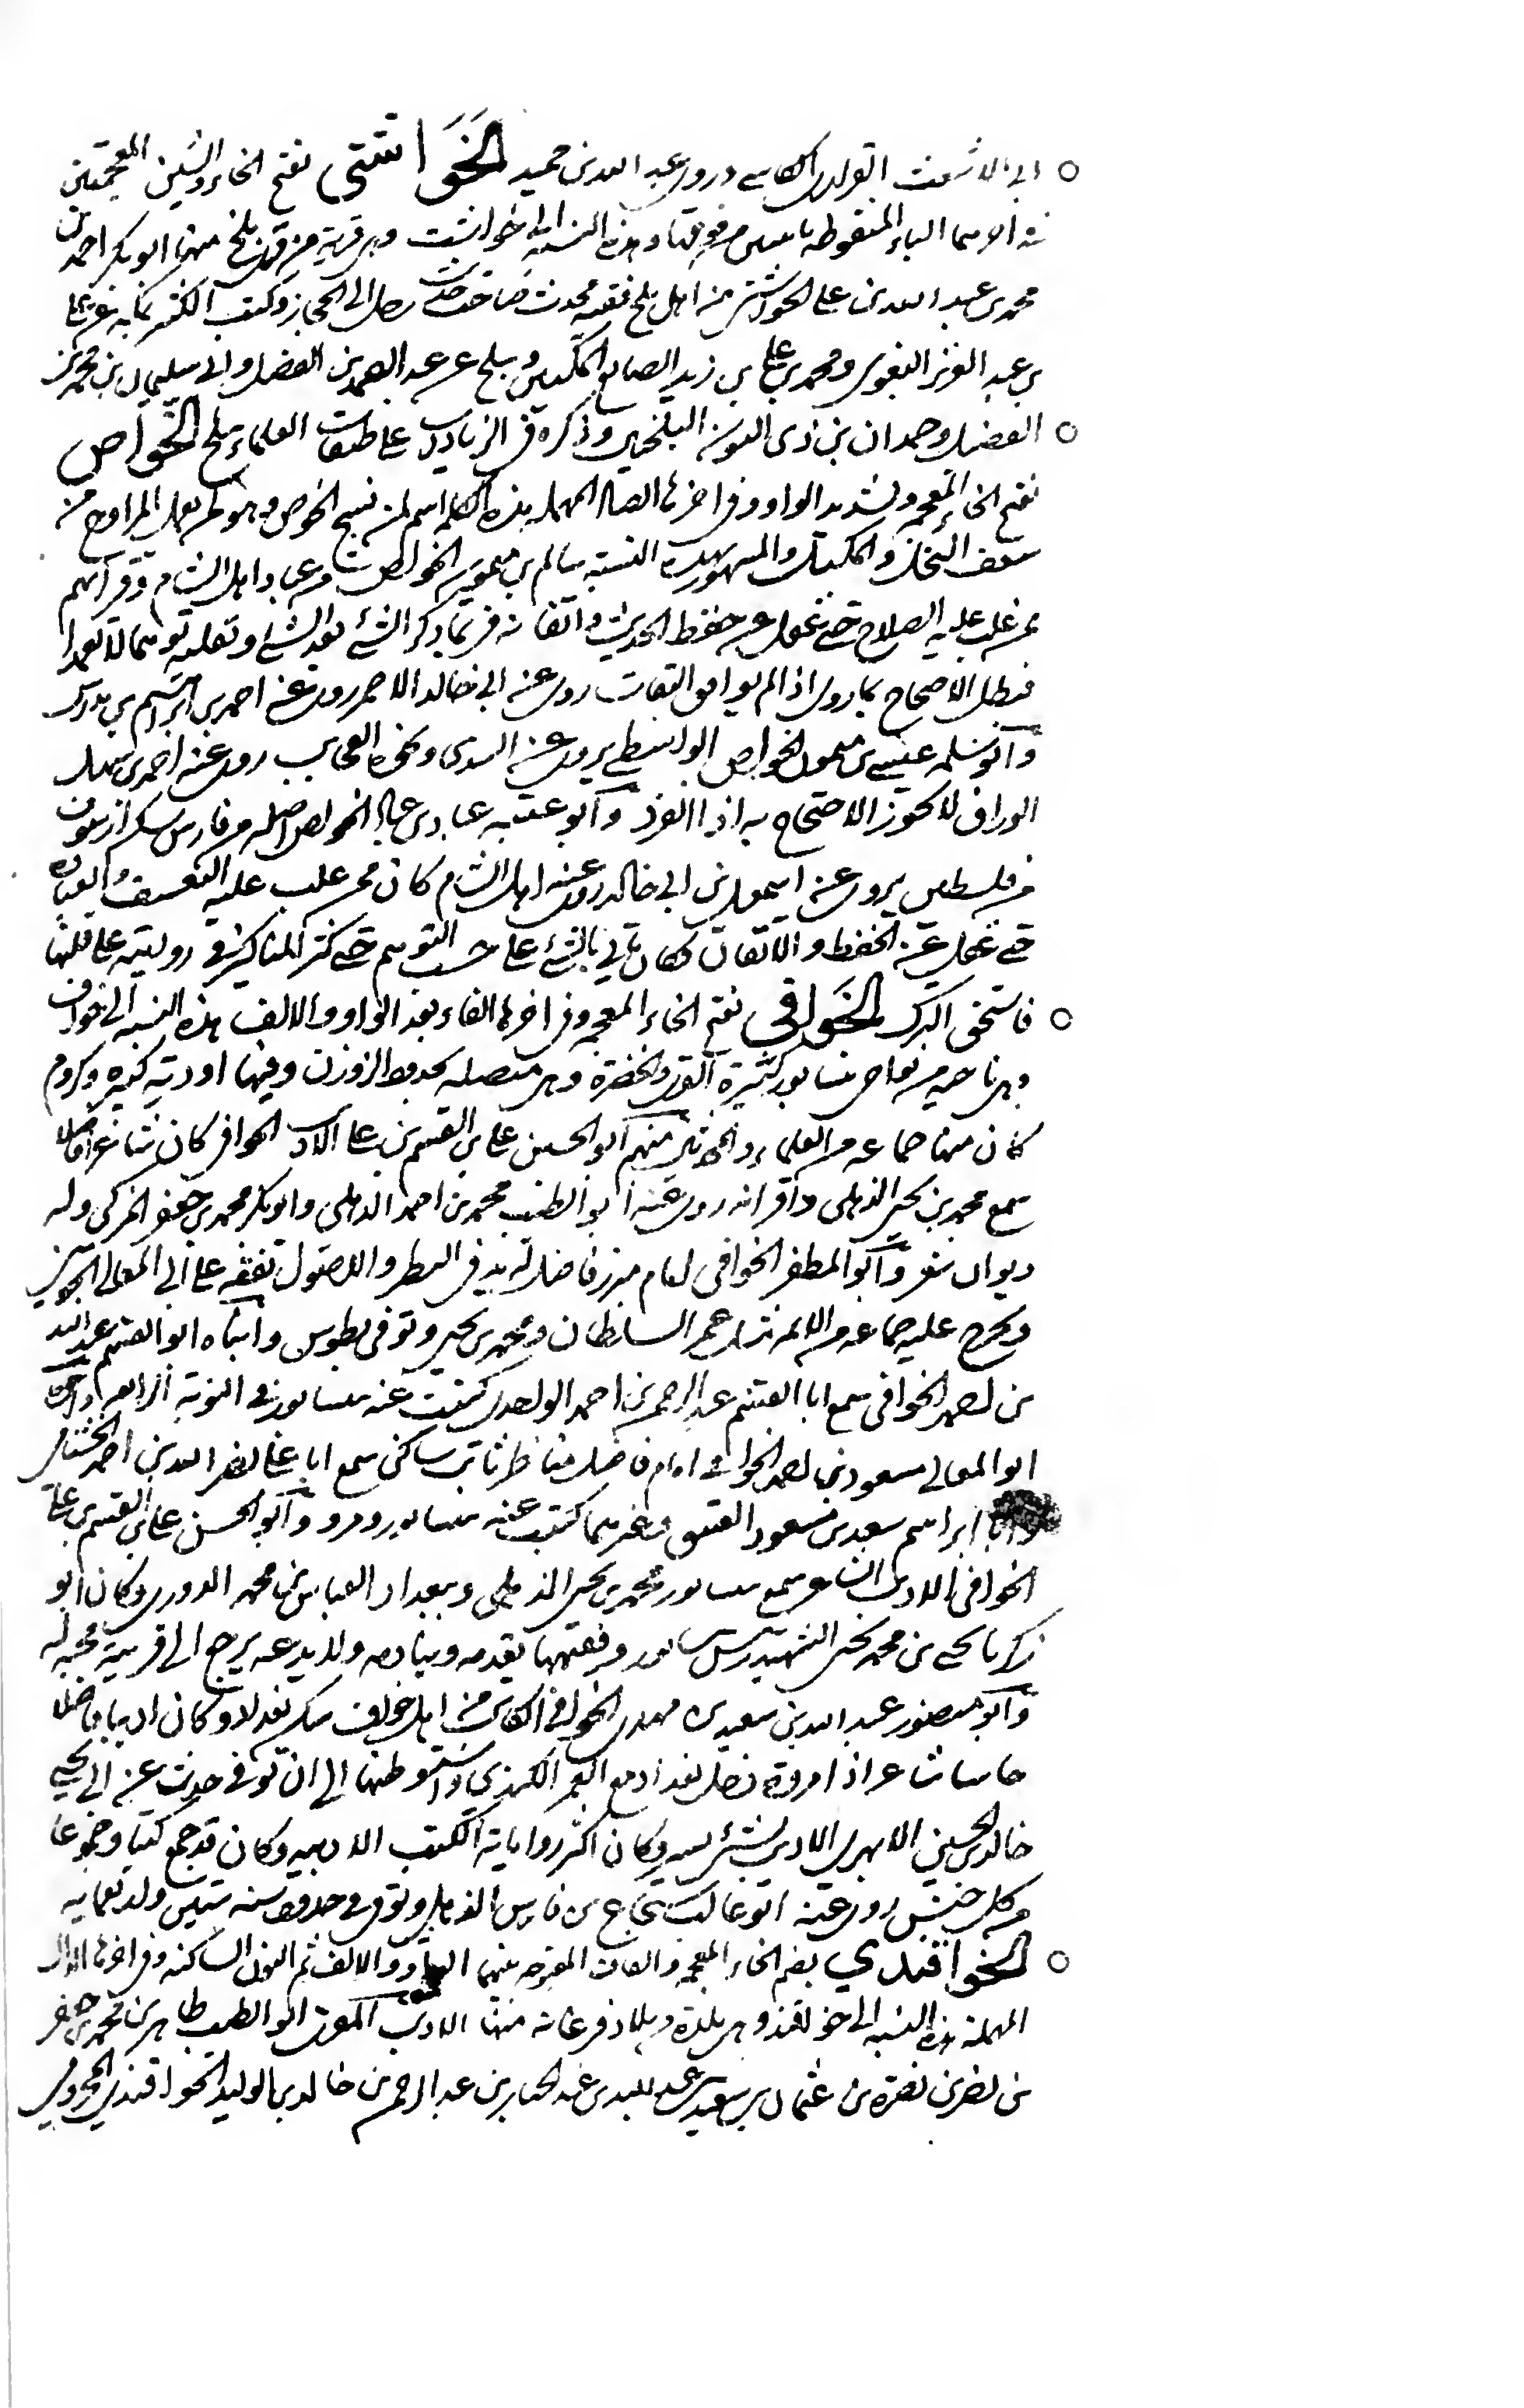 ابى الاشعث القرارى الكاسى وروى عبد الله بن حميد الخَوَاشتى بفتح الخاء والشين المعجمتين
بينهما الياء المنقوطة باثنتين من فوقها هذه النسبة الى خواشت وهى قرية من قرى بلخ منها ابو بكر احمد بن
محمد بن عبد الله بن على الخواشتى من اهل بلخ فقيه محدث صاحب حديث رحل الى الحجاز وكتب الكثير بمكة عن على
بن عبد العزيز البغوى ومحمد بن على بن زيد الصايغ المكيين وببلخ عن عبد الصمد بن الفضل وابى سليمان بن محمد بن
الفضيل وحمدان بن ذى النون البلخيين وذكره فى الزيادات على طبقات العلماء ببلخ الخوَّاص
بفتح الخاء المعجمة وتشديد الواو وفى اخرها الصاد المهملة هذه الكلمة اسم لمن ينسج الخوص وهو لمن يعمل المراوح من
سعف النخل والمكتل والمشهور بهذه النسبة سالم بن ميمون الخواص من عباد اهل الشام وقرائهم
ممن غلب عليه الصلاح حتى غفل عن حفظ الحديث واتقانه فربما ذكر الشئ بعد الشئ وتقلبه توهما لا تعمدا
فبطل الاحتجاج بما روى اذا لم يوافق الثقات روى عن ابى خالد الاحمر روى عنه احمد بن ابرهيم بن مدرك
وابو سلمة عيسى بن ميمون الخواص الواسطى يروى عن السدى وغيره العجايب روى عنه احمد بن سهل
الوراق لا يجوز الاحتجاج به اذا انفرد وابو عتبة عباد بن عباد الخواص اصله من فارس سكن ارسوف
من فلسطين يروى عن اسمعيل بن ابى خالد روى عنه اهل الشام كان ممن غلب عليه التقشف والعبادة
حتى غفل عن الحفظ والاتقان فكان ياتى بالشئ على حسب التوهم حتى كثر المناكير فى روايته على قلتها
فاستحق الترك الخَوافى بفتح الخاء المعجمة وفى اخرها الفاء بعد الواو والالف هذه النسبة الى خواف
وهى ناحية من نواحى نيسابور كثيرة القرى والخضرة وهى متصلة بحدود الزوزن وفيها اودية كثيرة وكروم
كان منها جماعة من العلماء والمحدثين منهم ابو الحسن على بن القسم بن على الاديب الخوافى كان شاعرا فاضلا
سمع محمد بن يحيى الذهلى واقرانه روى عنه ابو الطيب محمد بن احمد الذهلى وابو بكر محمد بن جعفر المزكى وله
ديوان شعر وابو المظفر الخوافى امام مبرز فاضل له يد فى النظر والاصول تفقه على ابى المعالى الجوينى
وتخرج عليه جماعة من الائمة مثل عمر السلطان ومحمد بن يحيى وتوفى بطوس وابناه ابو القسم عبد الله
بن احمد الخوافى سمع ابا القسم عبد الرحمن بن احمد الواحدى كتبت عنه بنيسابور فى النوبة الرابعة واخوه
ابو المعالى مسعود بن احمد الخوافى امام فاضل مناظر ثابت ساكن سمع ابا على نصر الله بن احمد الخشنامى
وابا ابراهيم سعد بن مسعود العتبى وغيرهما كتبت عنه بنيسابور ومرو وابو الحسن على بن القسم بن على
الخوافى الاديب الشاعر سمع بنيسابور محمد بن يحيى الذهلى وببغداد العباس بن محمد الدورى وكان ابو
زكريا يحيى بن محمد بن يحيى الشهيد رئيس نيسابور وفقيهها يقدمه وينادمه ولا يدعه يرجع الى قريته محبة له
وابو منصور عبد الله بن سعيد بن مهدى الخوافى الكاتب من اهل خواف سكن بغداد وكان اديبا فاضلا
حاسبا شاعرا ذا مروة دخل بغداد مع العميد الكندرى واستوطنها الى ان توفى حدث عن ابى يحيى
خالد بن الحسين الابهرى الاديب بشئ يسير وكان اكثر رواياته الكتب الادبية وكان قد جمع كتبا وجموعا
من كل جنس روى عنه ابو غالب شجاع بن فارس الذهلى وتوفى فى حدود سنة ستين واربعماية
الخواقندي بضم الخاء المعجمة والقاف المفتوحة بينهما الواو والالف ثم النون الساكنة وفى اخرها الدال
المهملة هذه النسبة الى خواقند وهى بلدة من بلاد فرغانة منها الاديب المقرى ابو الطيب طاهر بن محمد بن جعفر
بن نصر بن نصرة بن عثمان بن سعيد بن عبد الله بن عبد الجبار بن عبد الرحمن بن خالد بن الوليد الخواقندى المخزومى